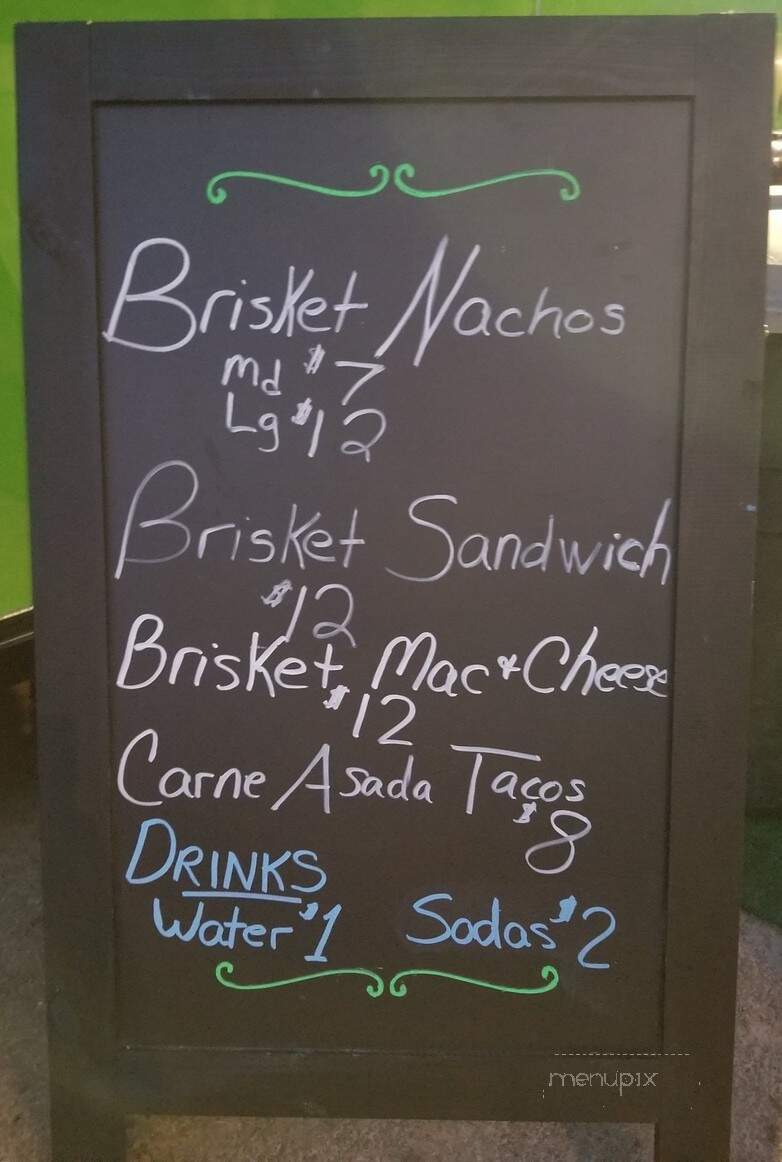 Brisket Nachos
Md $7
Lg $12
Brisket Sandwich
$12
Brisket Mac & Cheese
$12
Carne Asada Tacos
$8
DRINKS
Water $1 Sodas $2
menupix